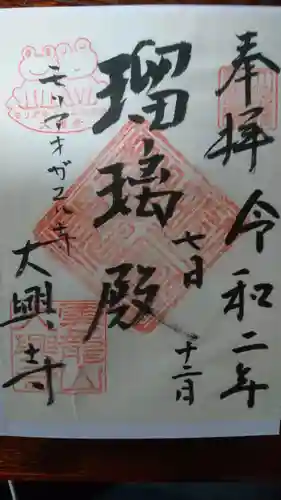 奉拝
令和二年
十二月
七日
瑠璃殿
モリアオガエル寺
大興寺